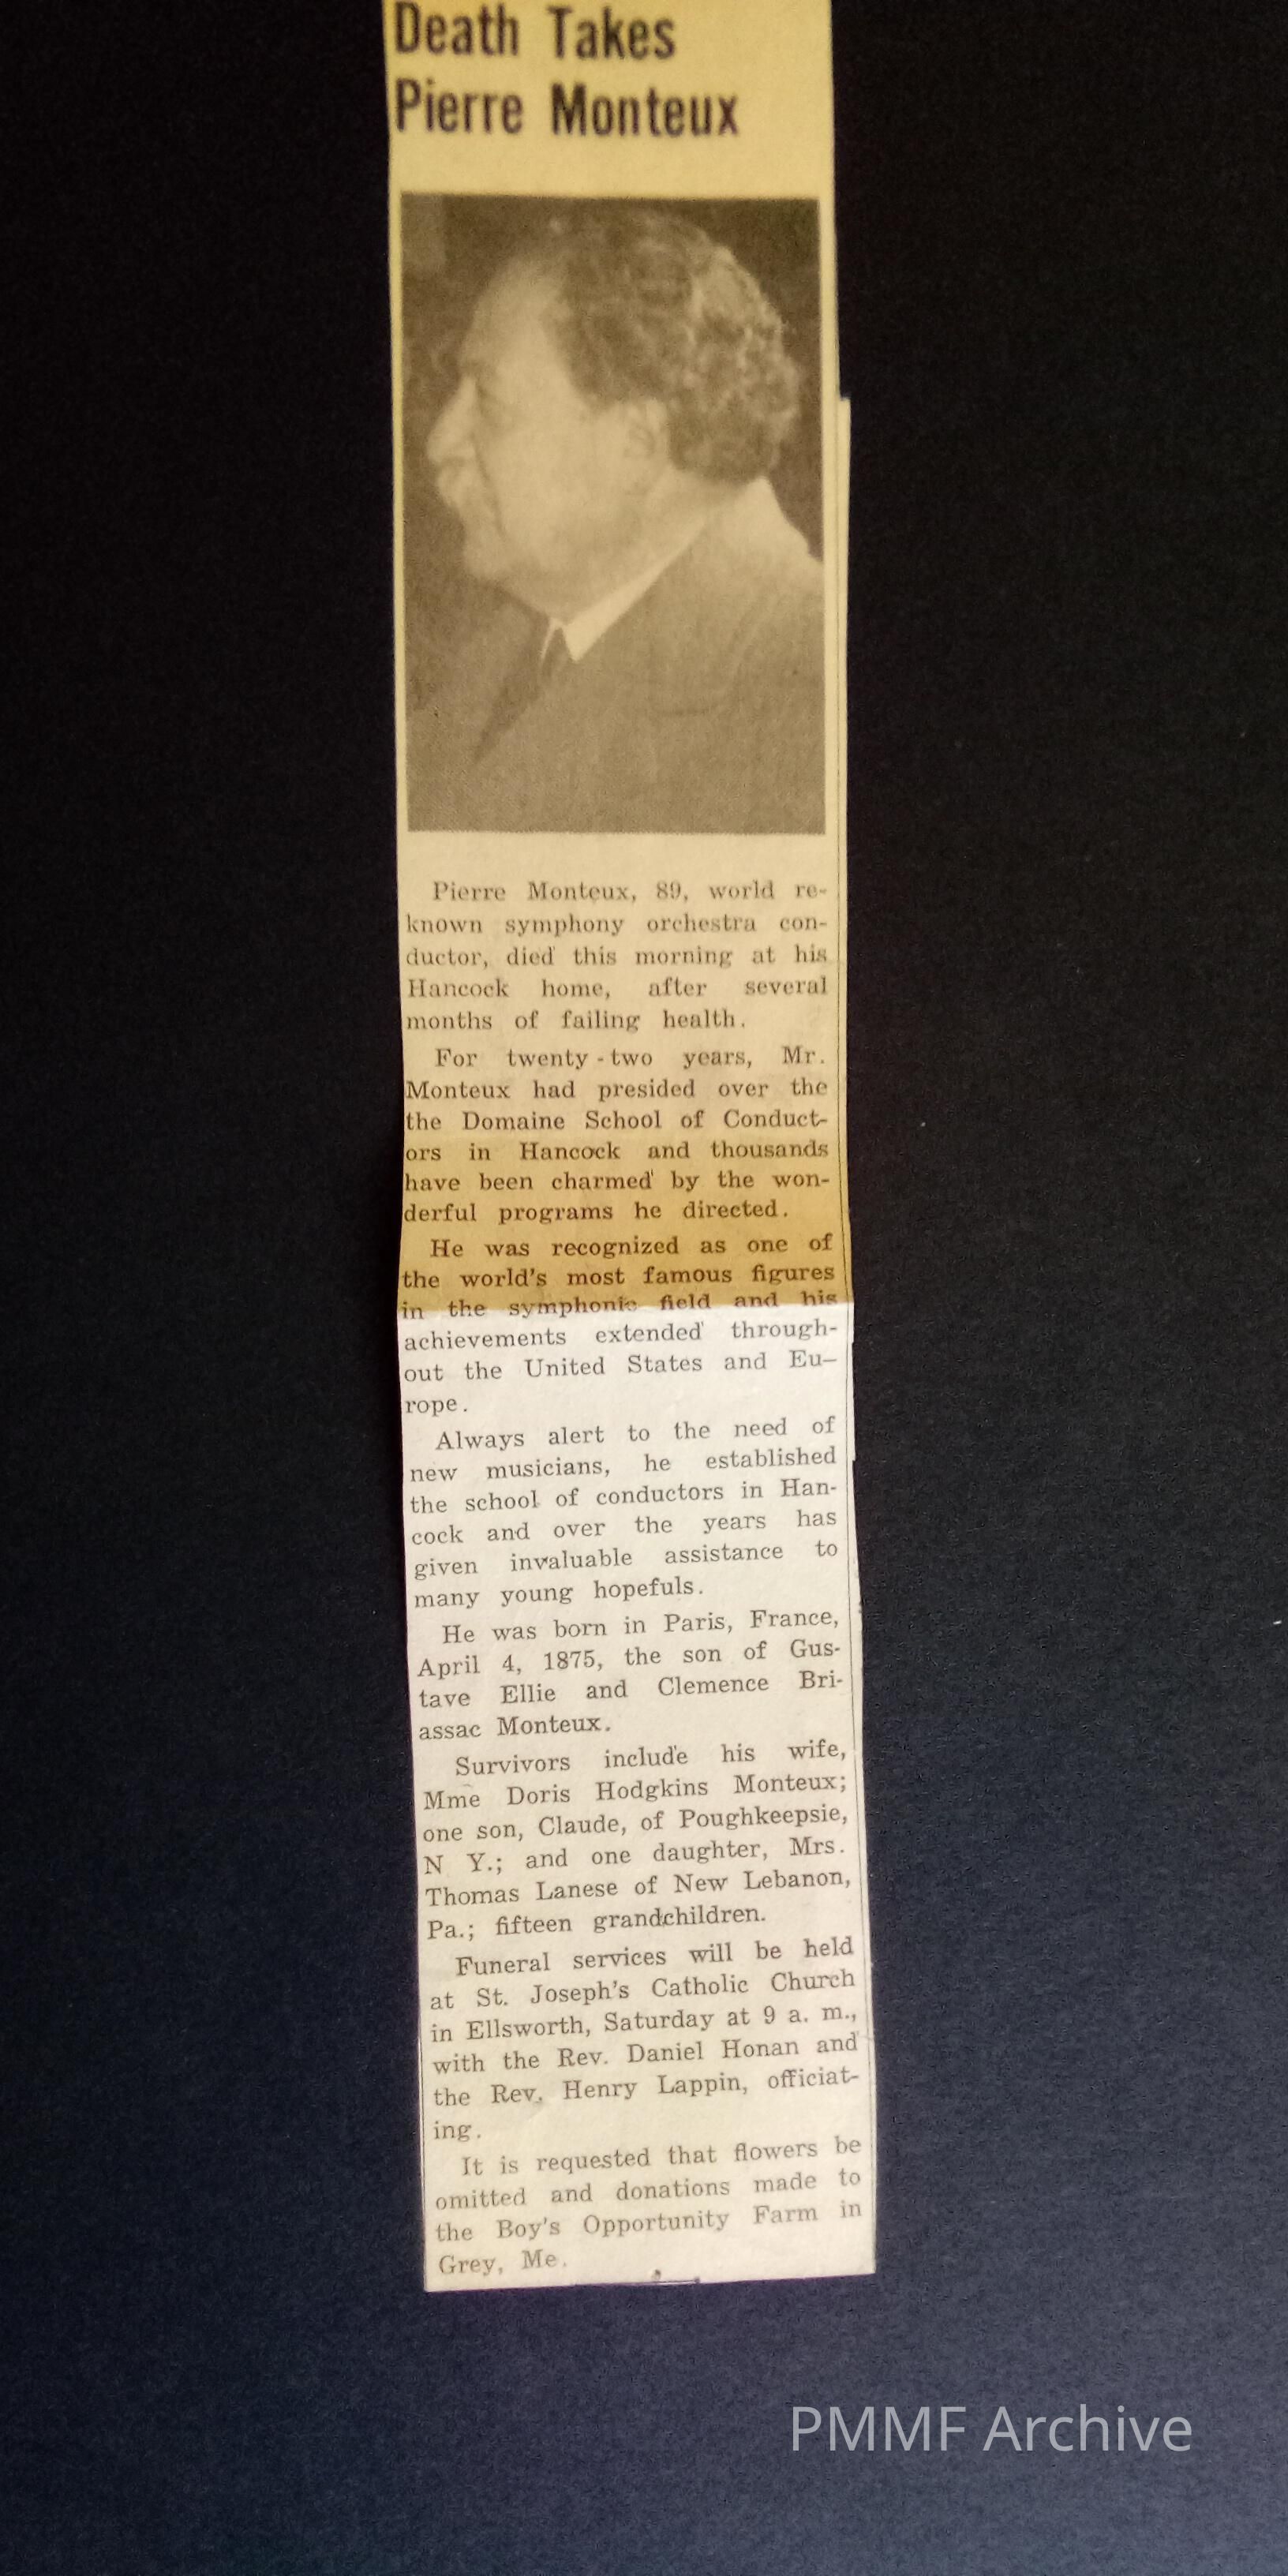 Death Takes
Pierre Monteux
Pierre Monteux, 89, world re-
known symphony orchestra con-
ductor, died this morning at his
Hancock home, after several
months of failing health.
For twenty-two years, Mr.
Monteux had presided over the
the Domaine School of Conduct-
ors in Hancock and thousands
have been charmed by the won-
derful programs he directed.
He was recognized as one of
the world's most famous figures
in the symphonic field and his
achievements extended through-
out the United States and Eu-
rope.
Always alert to the need of
new musicians, he established
the school of conductors in Han-
cock and over the years has
given invaluable assistance to
many young hopefuls.
He was born in Paris, France,
April 4, 1875, the son of Gus-
tave Ellie and Clemence Bri-
assac Monteux.
Survivors include his wife,
Mme Doris Hodgkins Monteux;
one son, Claude, of Poughkeepsie,
N Y.; and one daughter, Mrs.
Thomas Lanese of New Lebanon,
Pa.; fifteen grandchildren.
Funeral services will be held
at St. Joseph's Catholic Church
in Ellsworth, Saturday at 9 a. m.,
with the Rev. Daniel Honan and
the Rev. Henry Lappin, officiat-
ing.
It is requested that flowers be
omitted and donations made to
the Boy's Opportunity Farm in
Grey, Me.
PMMF Archive